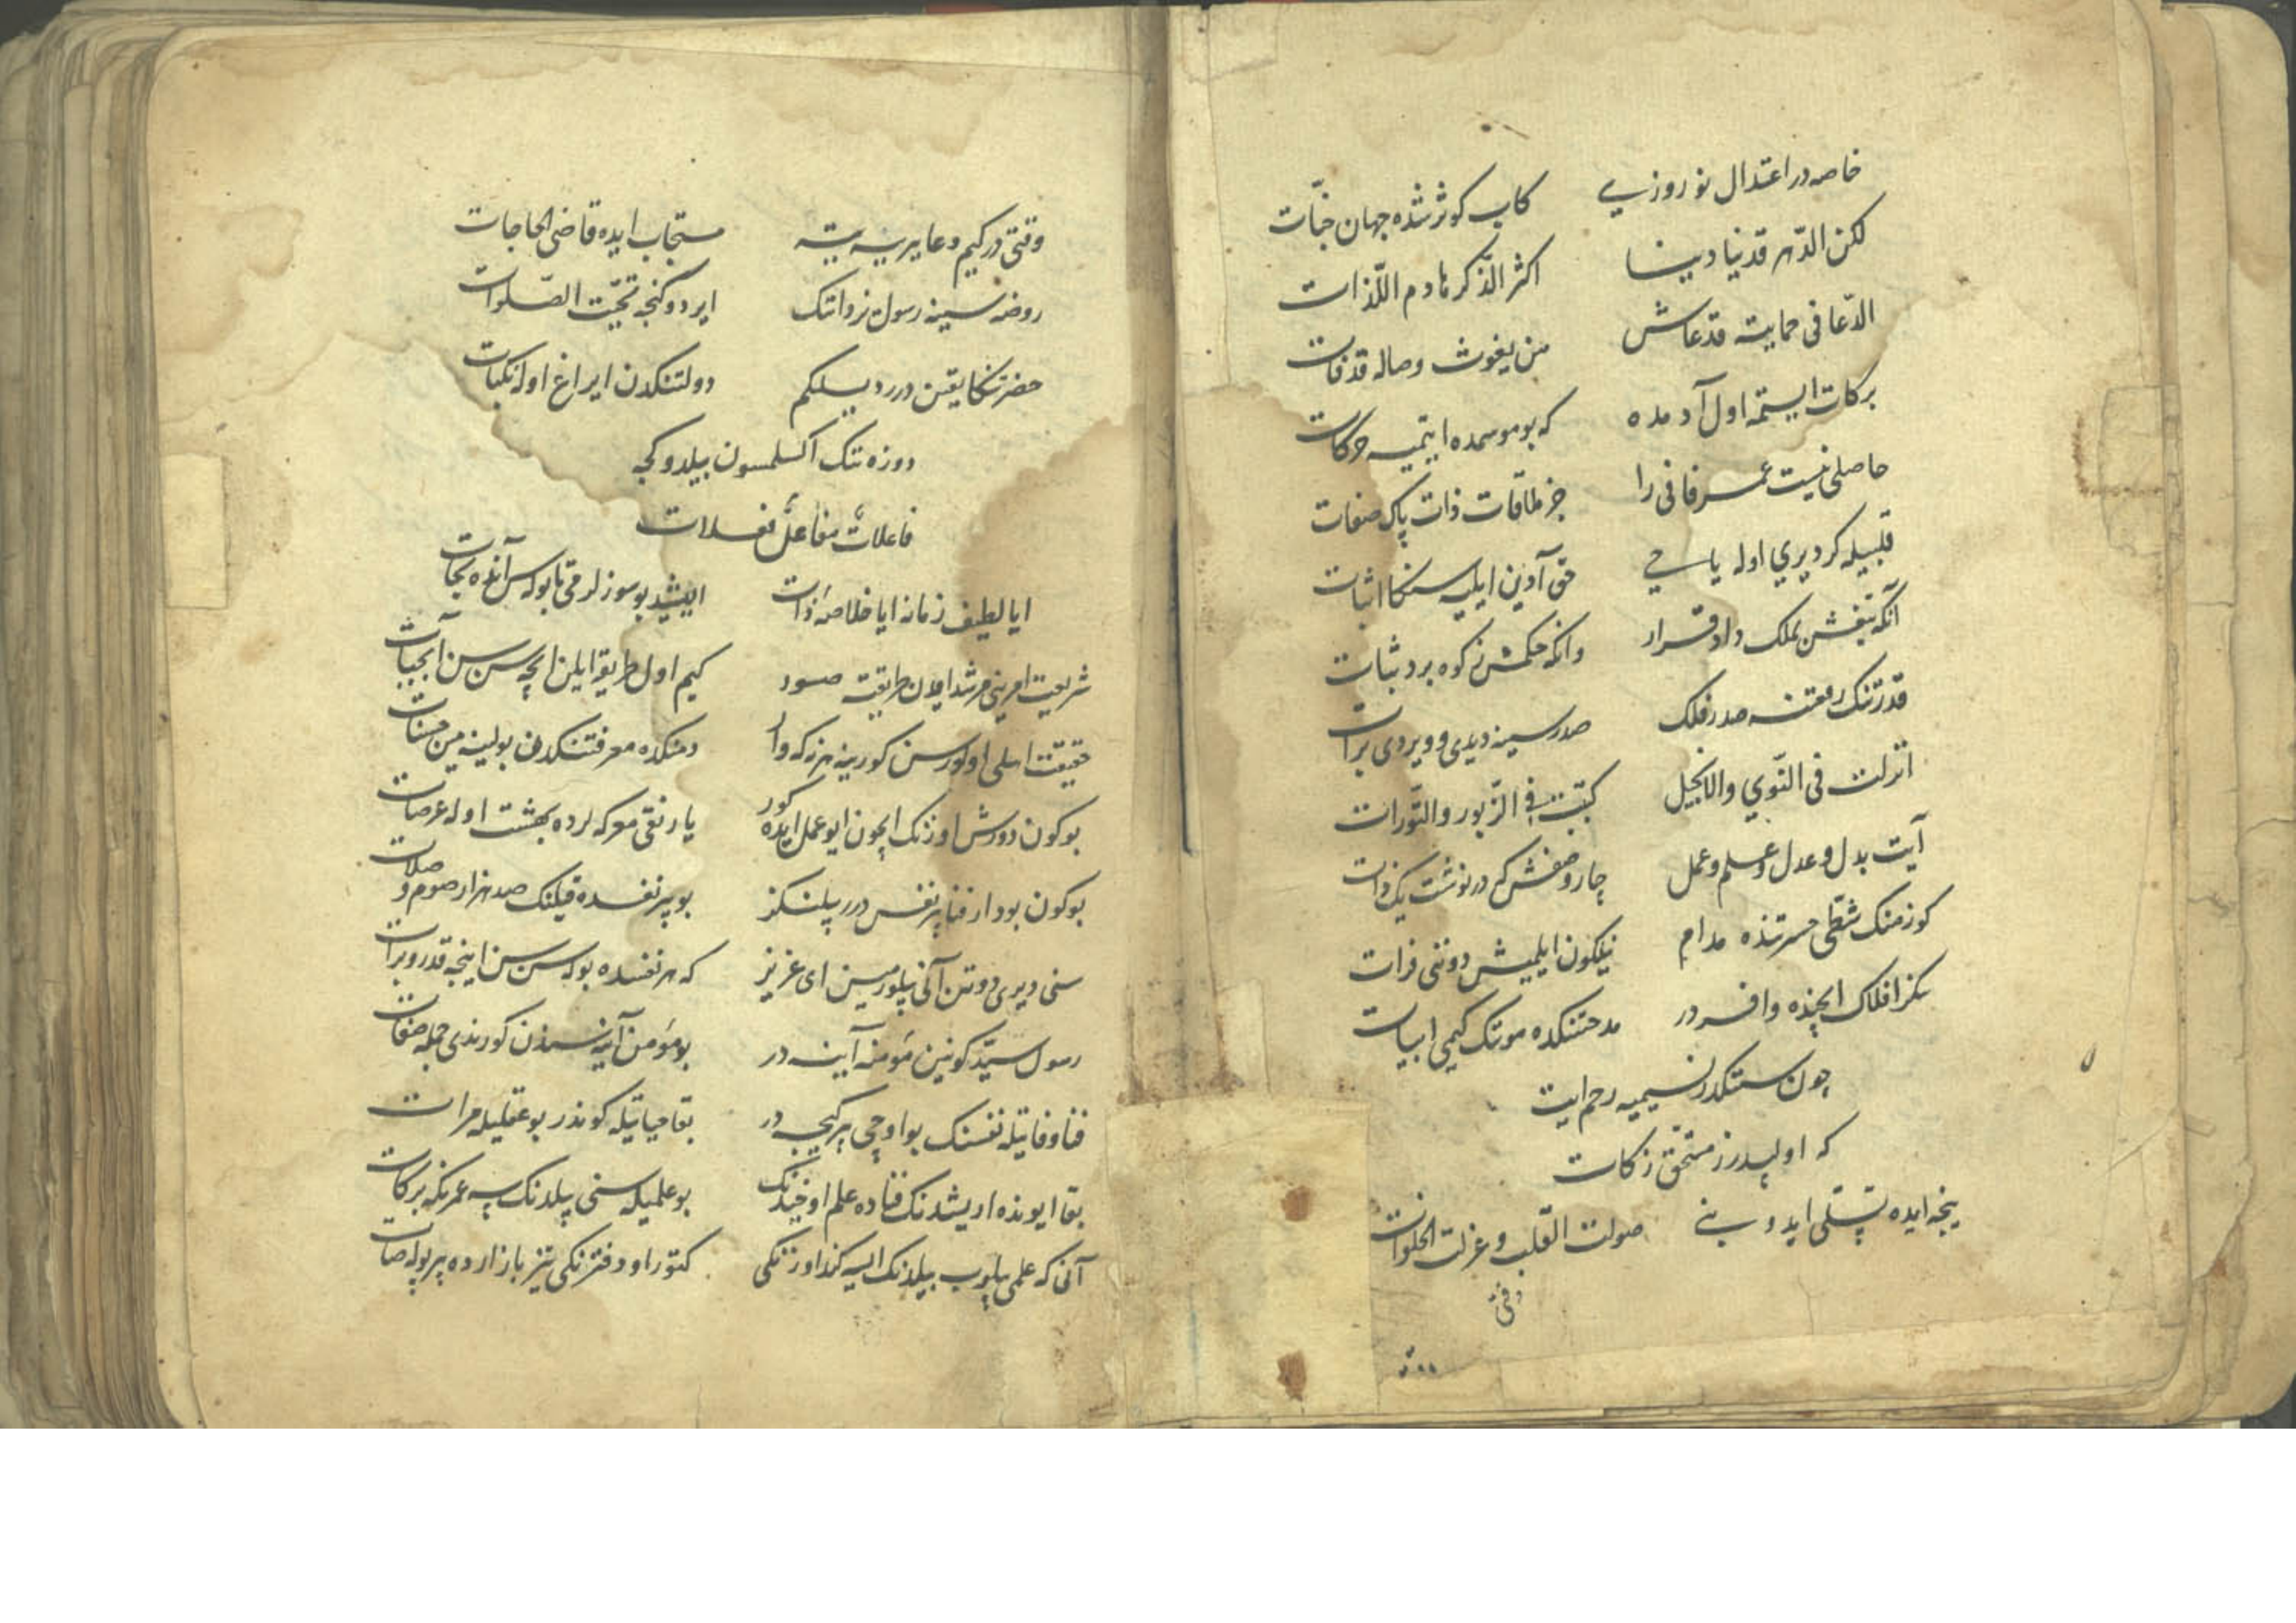 خاصه در اعتدال نوروزی کاب کوثر شده جهان جنّات
لکن الدّهر قدنیا دینا اکثر الذّکر هادم اللّذات
الدّعا فی حمایته قدعاش من یغوث وصاله قدفات
برکات ایستمه اول آدمده که بو موسمده ایتمیه حرکات
حاصلی نیست عمر فانی را جز ملاقات ذات پاک صفات
قلبیله کر دیری اوله یا حی حق آدین ایلیه سنکا اثبات
آنکه تیغش بملک داد قرار وانکه حکمش ز کوه برد ثبات
قدرتنک رفعتنه صدر فلک صدرسینه دیدی و ویردی برات
انزلت فی النّوی والانجیل کتبت فی الزّبور والتّورات
آیت بذل و عدل و علم و عمل چار وصفش که در نوشت یک ذات
کوزمنک شطّی حسرتنده مدام نیلکون ایلمیش دوننی فرات
سکز افلاک ایچنده وافر در مدحتنکده موتک کیمی ابیات
چون سنکدر نسیمیه رحم ایت
که اولپدرز مستحق زکات
نیجه ایده تسلّی ایدو بنی صولت القلب و عزلت الخلوات
وقتی
وقتی در کیم دعا بیریسه یته مستجاب ایده قاضی الحاجات
روضه سینه رسول نزداتنک ایردوکنجه تحیّت الصّلوات
حضرتنکا یقین درر دیسلکم دولتنکدن ایراغ اوله نکبات
دوزه تنک اکسلمسون بیلدوکجه
فاعلات مفاعلن فعلات
ایا لطیف زمانه ایا خلاصهٔ ذات ایشید بو سوزلرمی تا بوله سن آنده نجات
شریعت امرینی مرشد ایدن طریقته صور کیم اول طریقه ایلن ایچه سن سن آب حیات
حقیقت اهلی اولورسن کورینه هر نه که وار دمنکده معرفتنکدن بولینه مین حسنات
بوکون دورش اوزنک ایچون ایو عمل ایده کور یارنقی معرکه لرده بهشت اوله عرصات
بوکون بو دار فنا بر نفس درر یلنکز بو بر نفسده قیلنک صد هزار صوم و صلات
سنی دیری دوتن آنی بیلورمیسن ای عزیز که هر نفسده بوله سن سن اینجه قدر و برات
رسول سیّد کونین مؤمنه آینه در بو مؤمن آینه سندن کورندی جمله صفات
فنا وفاتیله نفسنک بواوچی بر کیجه در بقا حیاتیله کوندر بو عقلیله مرات
بقا ایونده اریشدنک فناده علم اوخیدنک بو علمیله سنی بیلدنک یسه عمرنکه برکات
آنی که علمی بیلوب بیلدنک ایسه کنداوزنکی کتور او دفترنکی تیز بازارده بر پوله صات